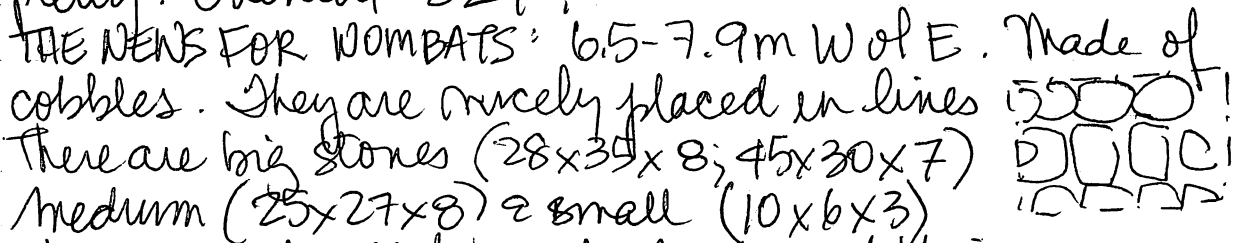 THE NEWS FOR WOMBATS: 6.5-7.9m W of E. Made of
cobbles. They are nicely placed in lines
There are big stones (28x35x8; 45x30x7)
Medium (25x27x8) & small (10x6x3)